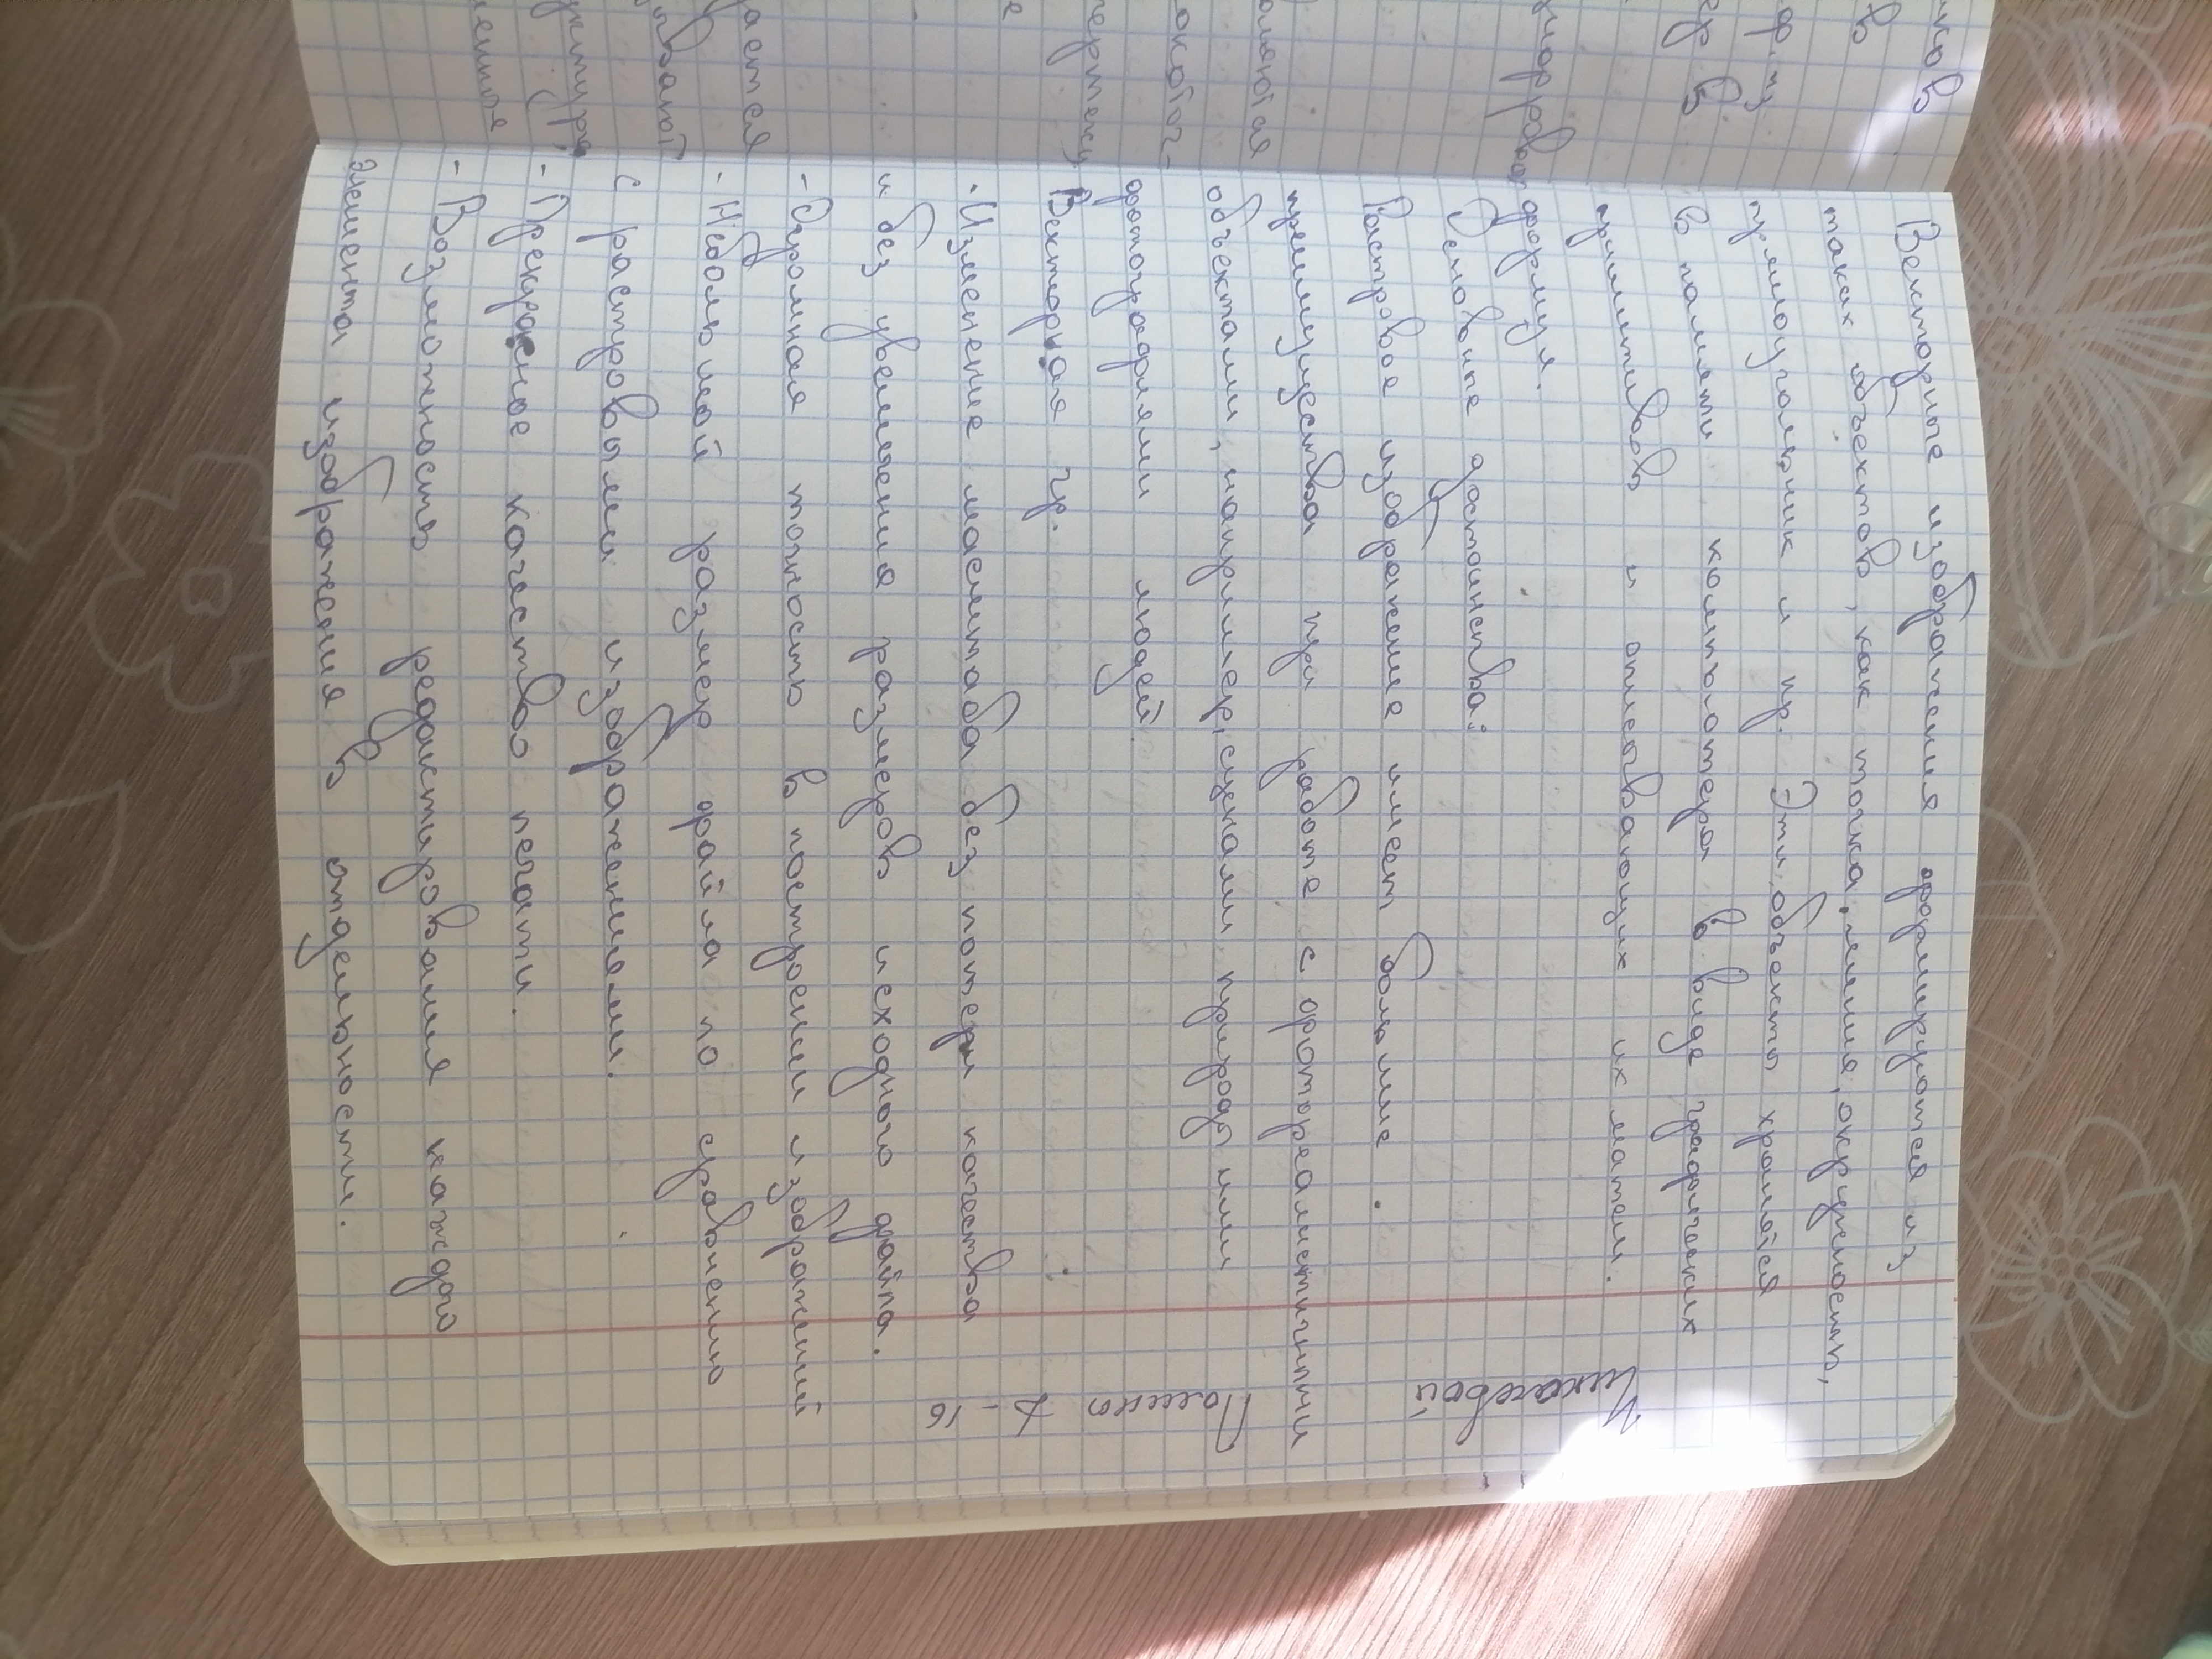 Векторные изображения формируются из
таких объектов, как точка, линия, окружность,
прямоугольник и пр. Эти объекты хранятся
в памяти компьютера в виде графических
примитивов и описывающих их матем.
формул.
Основные достоинства:
Растровое изображение имеет большие
преимущества при работе с фотореалистичными
объектами, например, сценами природы или
фотографиями людей.
Векторная гр.
- Изменение масштаба без потери качества
и без увеличения размеров исходного файла.
- Огромная точность в построении изображений
- Небольшой размер файла по сравнению
с растровыми изображениями.
- Прекрасное качество печати.
- Возможность редактирования каждого
элемента изображения в отдельности.
Чикаевой
Полина
Д-16